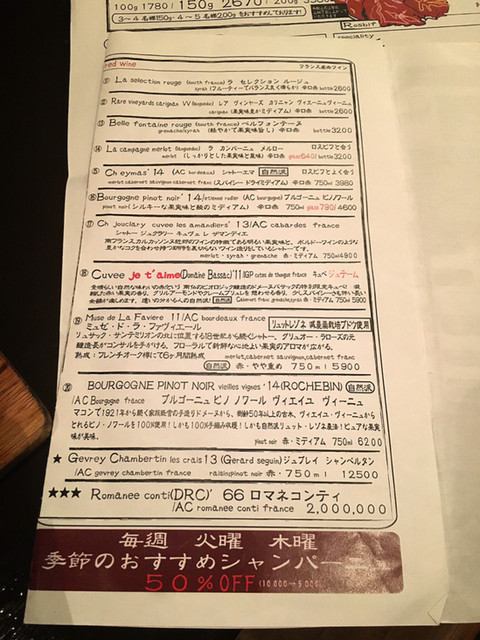 100g 1780 / 150g 2670 / 200g 3560
3～4名様150g・4～5名様200gをおすすめしております!
Rosbif
speciality
red wine フランス産赤ワイン
⑪ La selection rouge (south france) ラ セレクション ルージュ
syrah (フルーティーでバランス良く滑らか) 辛口赤 bottle2600
⑫ Rare vineyards carignan VV (bowgnelo) レア ヴィンヤーズ カリニャン ヴィエーユヴィーニュ
carignan (果実味豊かでミディアム) 辛口赤 bottle2600
⑬ Belle fontaine rouge (south france) ベルフォンテーヌ
grenache/syrah (軽やかて果実味旨し) 辛口赤 bottle3200
⑭ La campagne merlot (bowgnelo) ラ カンパーニュ メルロー ロスビフと合う
merlot (しっかりとした果実味と風味) 辛口赤 glass640/ bottle3200
⑮ Ch eymas'14 (AC bordeaux) シャトーエマ 自然派 ロスビフとよく合う
merlot cabernet sauvignon cabernet franc (スパイシー ドライミディアム) 辛口赤 750ml 3980
⑯ Bourgogne pinot noir'14/etienne rodier (AC bourgogne) ブルゴーニュ ピノノワール
pinot noir (シルキーな果実味と酸のミディアム) 辛口赤 750ml glass790/4600
⑰ Ch jouclary cuvee les amandiers'13/AC cabardes france
シャトー ジュクラリー キュヴェ レ ザマンディエ
南フランスカルカッソンヌ近郊のワインの特徴である明るい果実味と、ボルドーワインのような
豊かなコクを合わせ持つ傑作を見らないワイン造りをしているシャトーです。
merlot・syrah・grenache 赤・ミディアム 750ml4900
⑱ Cuvee je t'aime (Domaine Bassac)'11 IGP cotes de thongue france キュベ ジュテーム
Cabernet franc,grenache,syrah 赤・ミディアム 750ml 5900
⑲ Muse de La Faviere 11/AC bordeaux france
ミューゼ・ド・ラ・ファヴィエール リュットレゾネ 減農薬栽培ブドウ使用
リュサック・サンテミリオンの丘に位置する18世紀から続くシャトー。グリュオー・ラローズの元
醸造長がコンサルを手がける。フローラルで新鮮なベリー系のアロマが広がる。
熟成:フレンチオーク樽にて6ヶ月間熟成 merlot,cabernet sauvignon,cabernet franc
自然派 赤・やや重め 750ml 5900
⑳ BOURGOGNE PINOT NOIR vieilles vignes'14(ROCHEBIN) 自然派
/AC Bourgogne france ブルゴーニュ ピノ ノワール ヴィエイユ ヴィーニュ
マコンで1921年から続く家族経営の手造りドメーヌから、樹齢50年以上の古木、ヴィエイユ・ヴィーニュから
とれるピノ・ノワールを100%使用!しかも100%手摘み収穫!しかも自然派リュット・レゾネ農法!ピュアな果実
味が美味。 pinot noir 赤・ミディアム 750ml 6200
★ Gevrey Chambertin les crais 13 (Gerard seguin) ジュブレイ シャンベルタン
/AC gevrey chambertin france raisin:pinot noir 赤・750ml 12500
★★★ Romanee conti(DRC)' 66 ロマネコンティ
/AC romanee conti france 2,000,000
毎週 火曜 木曜
季節のおすすめシャンパーニュ
50%OFF (10,000→5,000)